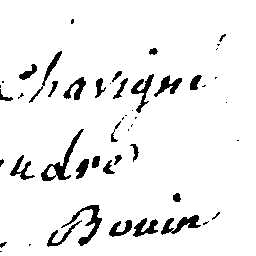 Chavigné
ndré
Bouin